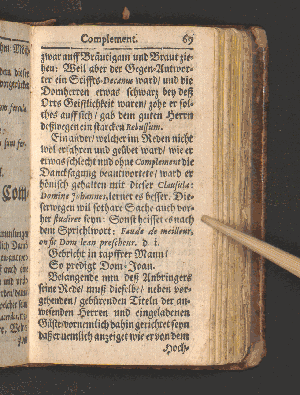 Complement. 69
zwar auff Bräutigam und Braut zie-
hen: Weil aber der Gegen-Antwor-
ter ein Stiffts-Decanus ward/ und die
Domherren etwas schwarz bey deß
Orts Geistlichkeit waren/ zohe er sol-
ches auff sich/ gab dem guten Herrn
deßwegen ein starcken Rebuffum.
Ein ander/ welcher im Reden nicht
wol erfahren und geübet war/ wie er
etwas schlecht und ohne Complement die
Dancksagung beantwortete/ ward er
hönisch gehalten mit dieser Clausula:
Domine Johannes, lernet es besser. Die-
serwegen wil sothane Sache auch vor-
her studiret seyn: Sonst heisset es nach
dem Sprichwort: Faude de meilleur,
on fit Dom Jean prescheur. d. i.
Gebricht ein tapffrer Mann/
So predigt Dom-Joan.
Belangende nun deß Anbringers
seine Rede/ muß dieselbe/ neben vor-
gehenden/ gebürenden Titeln der an-
wesenden Herren und eingeladenen
Gäste/ vornemlich dahin gerichtet seyn
daß er vemlich anzeiget wie er von dem
Hoch-